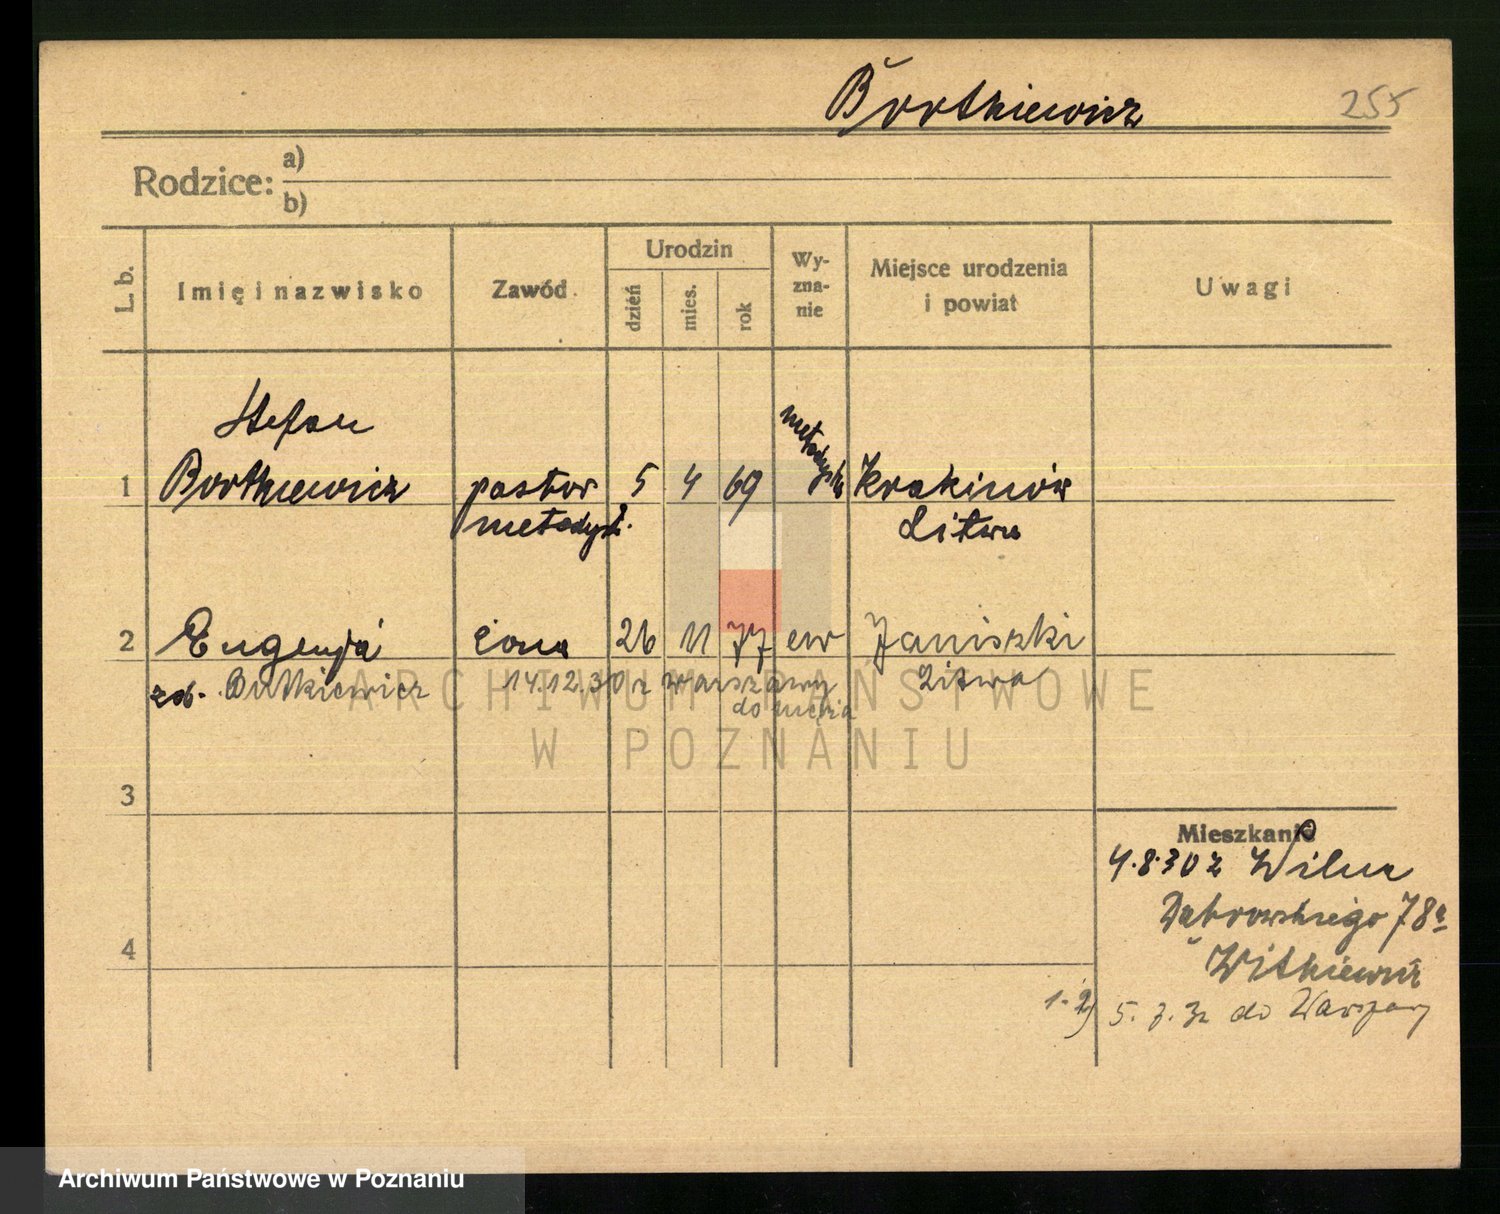 Bortkiewicz 255
Rodzice: a)
b)
L. b. Imię i nazwisko Zawód Urodzin dzień mies. rok Wy-zna-nie Miejsce urodzenia i powiat Uwagi
Stefan
1 Bortkiewicz pastor 5 4 69 metodysta Krakinów
metodyst. Litwa
2 Eugenja żona 26 11 77 ew Janiszki
zd. Butkiewicz 14.12.30 z Warszawy Litwa
do męża
ARCHIWUM PAŃSTWOWE
W POZNANIU
3
Mieszkanie
4.8.30 z Wilna
Dąbrowskiego 78a
4
Witkiewicz
1-2) 5. 7. 32 do Warszawy
Archiwum Państwowe w Poznaniu